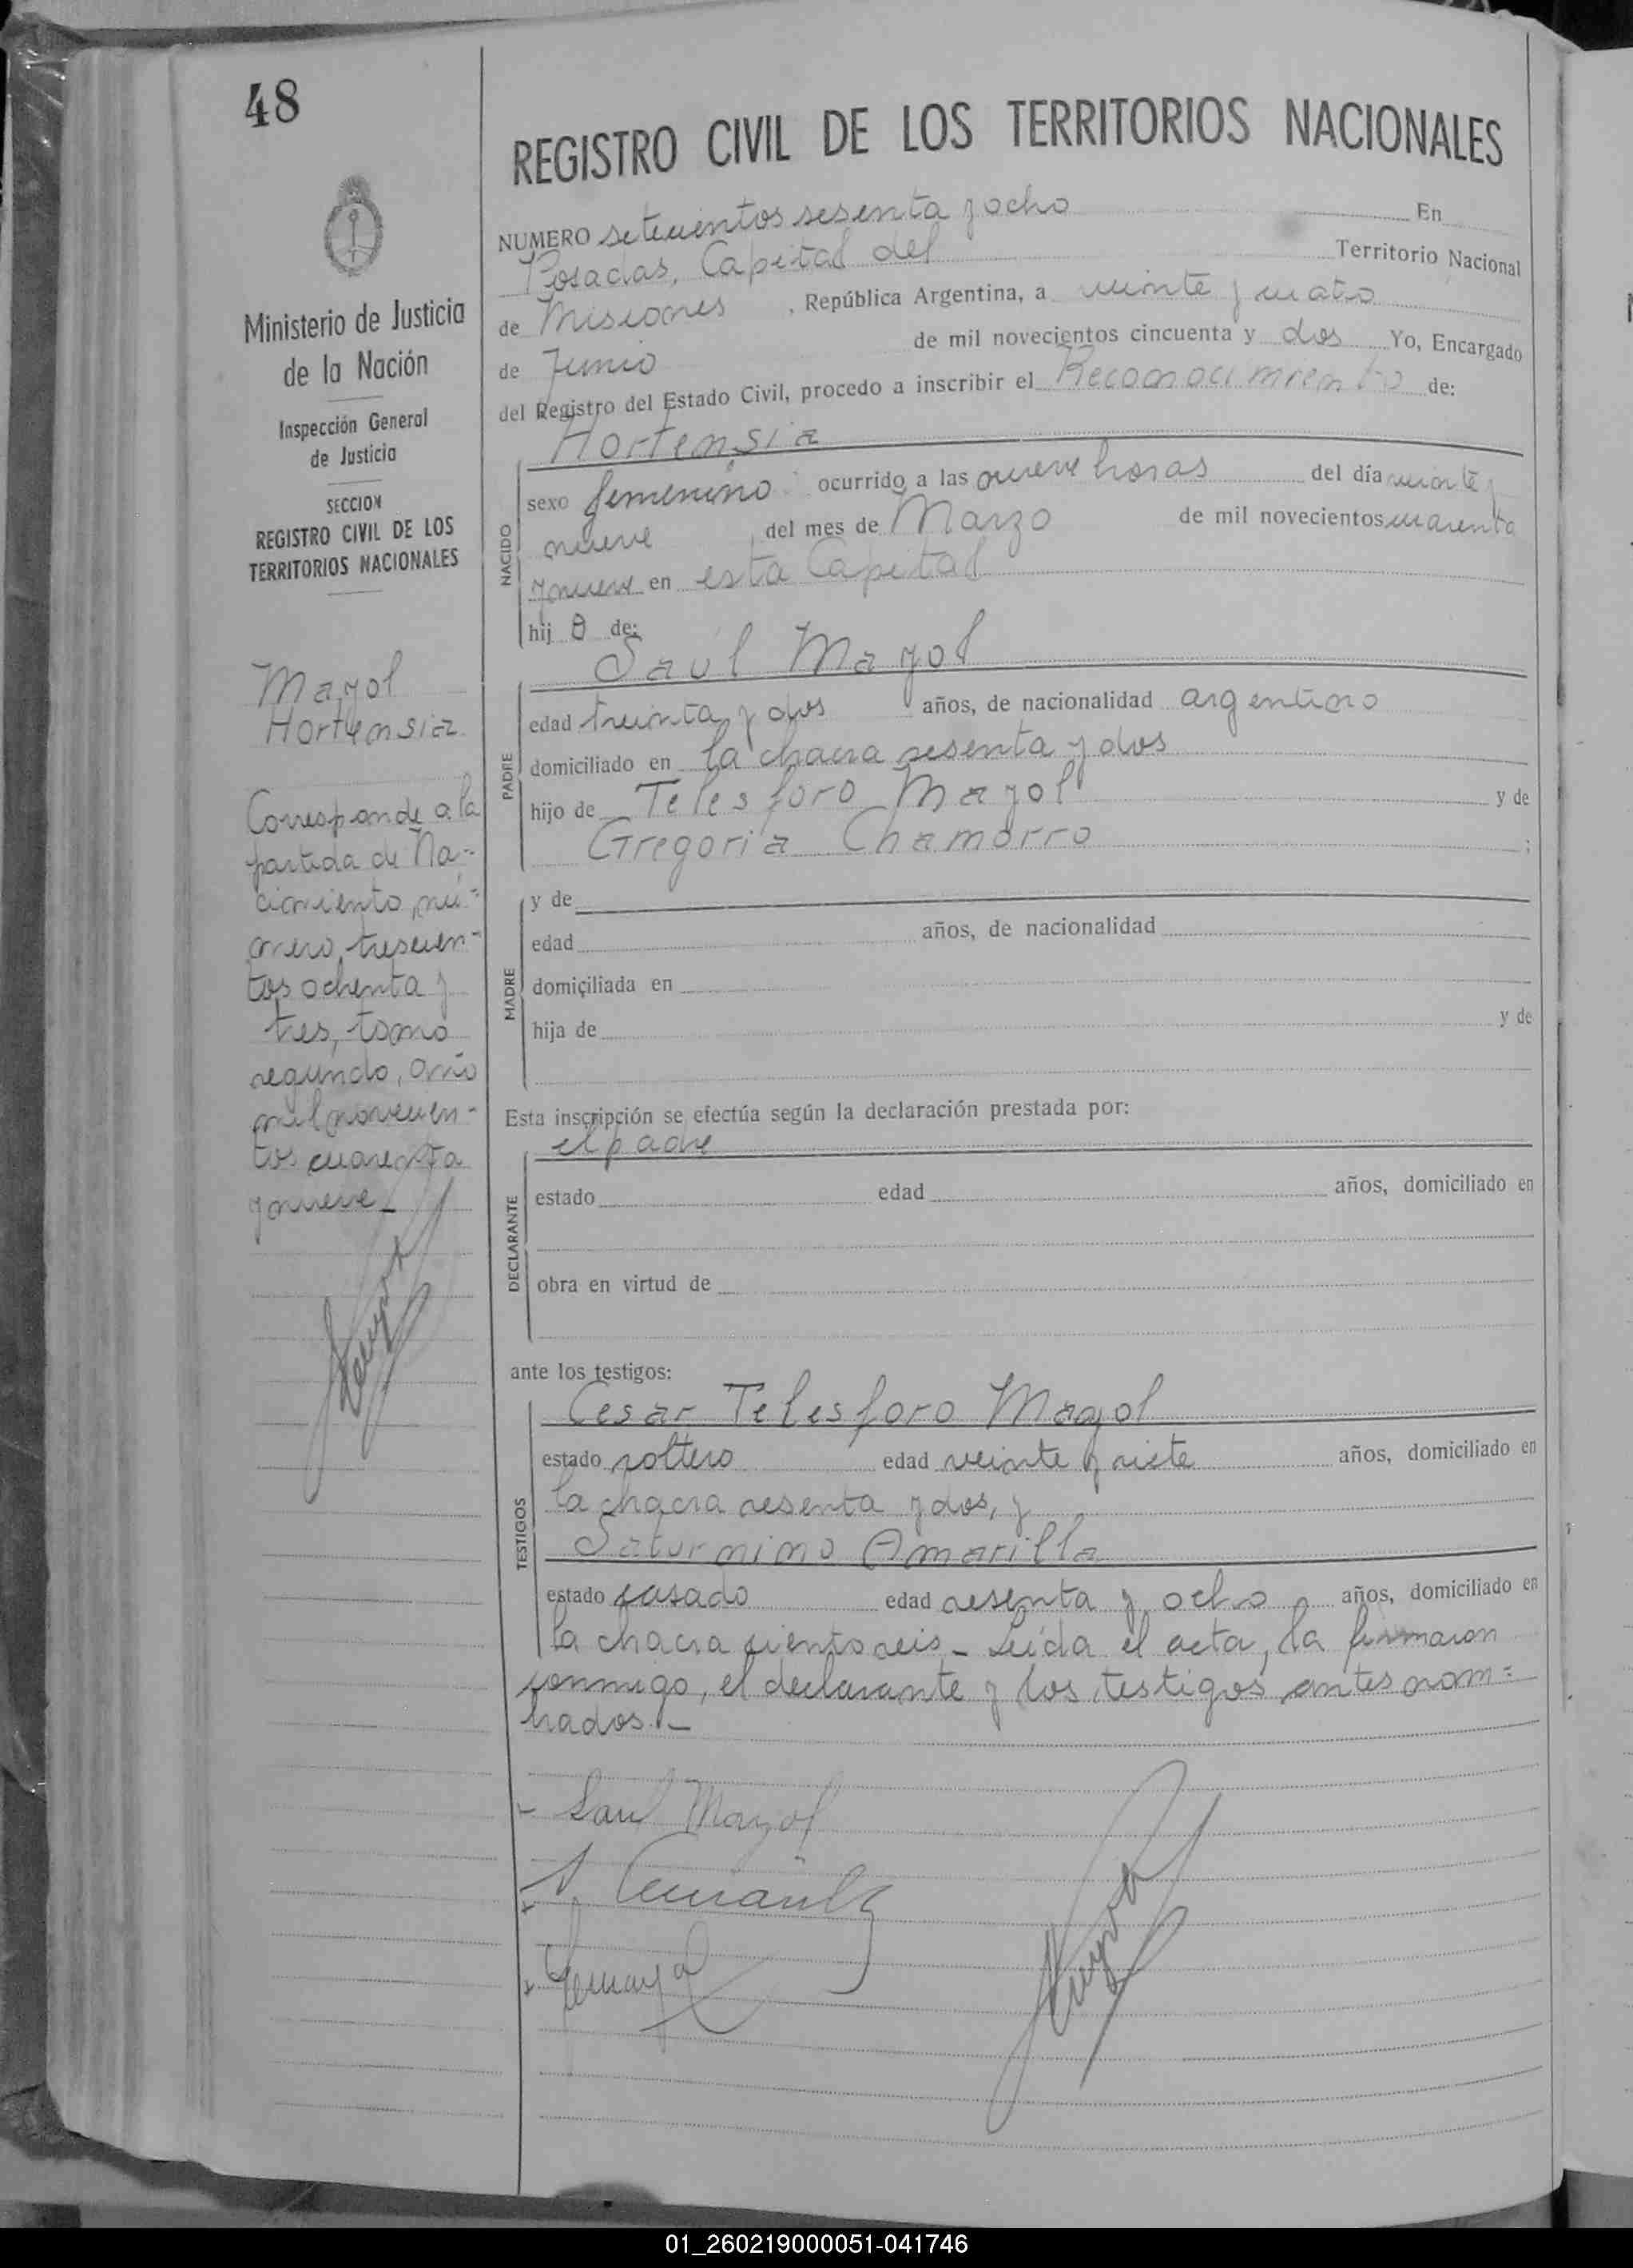 48
REGISTRO CIVIL DE LOS TERRITORIOS NACIONALES
Ministerio de Justicia
de la Nación
Inspección General
de Justicia
SECCION
REGISTRO CIVIL DE LOS
TERRITORIOS NACIONALES
Mayol
Hortensia
Corresponde a la
partida de Na-
cimiento, nú-
mero, trescien-
tos ochenta y
tres, tomo
segundo, año
mil novecien-
tos cuarenta
y nueve_
NUMERO setecientos sesenta y ocho En
Posadas, Capital del Territorio Nacional
de Misiones , República Argentina, a veinte y cuatro
de Junio de mil novecientos cincuenta y dos Yo, Encargado
del Registro del Estado Civil, procedo a inscribir el Reconocimiento de:
Hortensia
NACIDO
sexo femenino ocurrido a las nueve horas del día veinte y
nueve del mes de Marzo de mil novecientos cuarenta
y nueve en esta Capital
hij de:
Saúl Mayol
PADRE
edad treinta y dos años, de nacionalidad argentino
domiciliado en la chacra sesenta y dos
hijo de Telesforo Mayol y de
Gregoria Chamorro ;
MADRE
y de
edad años, de nacionalidad
domiciliada en
hija de y de
Esta inscripción se efectúa según la declaración prestada por:
el padre
DECLARANTE
estado edad años, domiciliado en
obra en virtud de
ante los testigos:
Cesar Telesforo Mayol
TESTIGOS
estado soltero edad veinte y siete años, domiciliado en
la chacra sesenta y dos, y
Saturnino Amarilla
estado casado edad sesenta y ocho años, domiciliado en
la chacra ciento seis_ Leída el acta, la firmaron
conmigo, el declarante y los testigos antes nom=
brados._
Saul Mayol
01_260219000051-041746